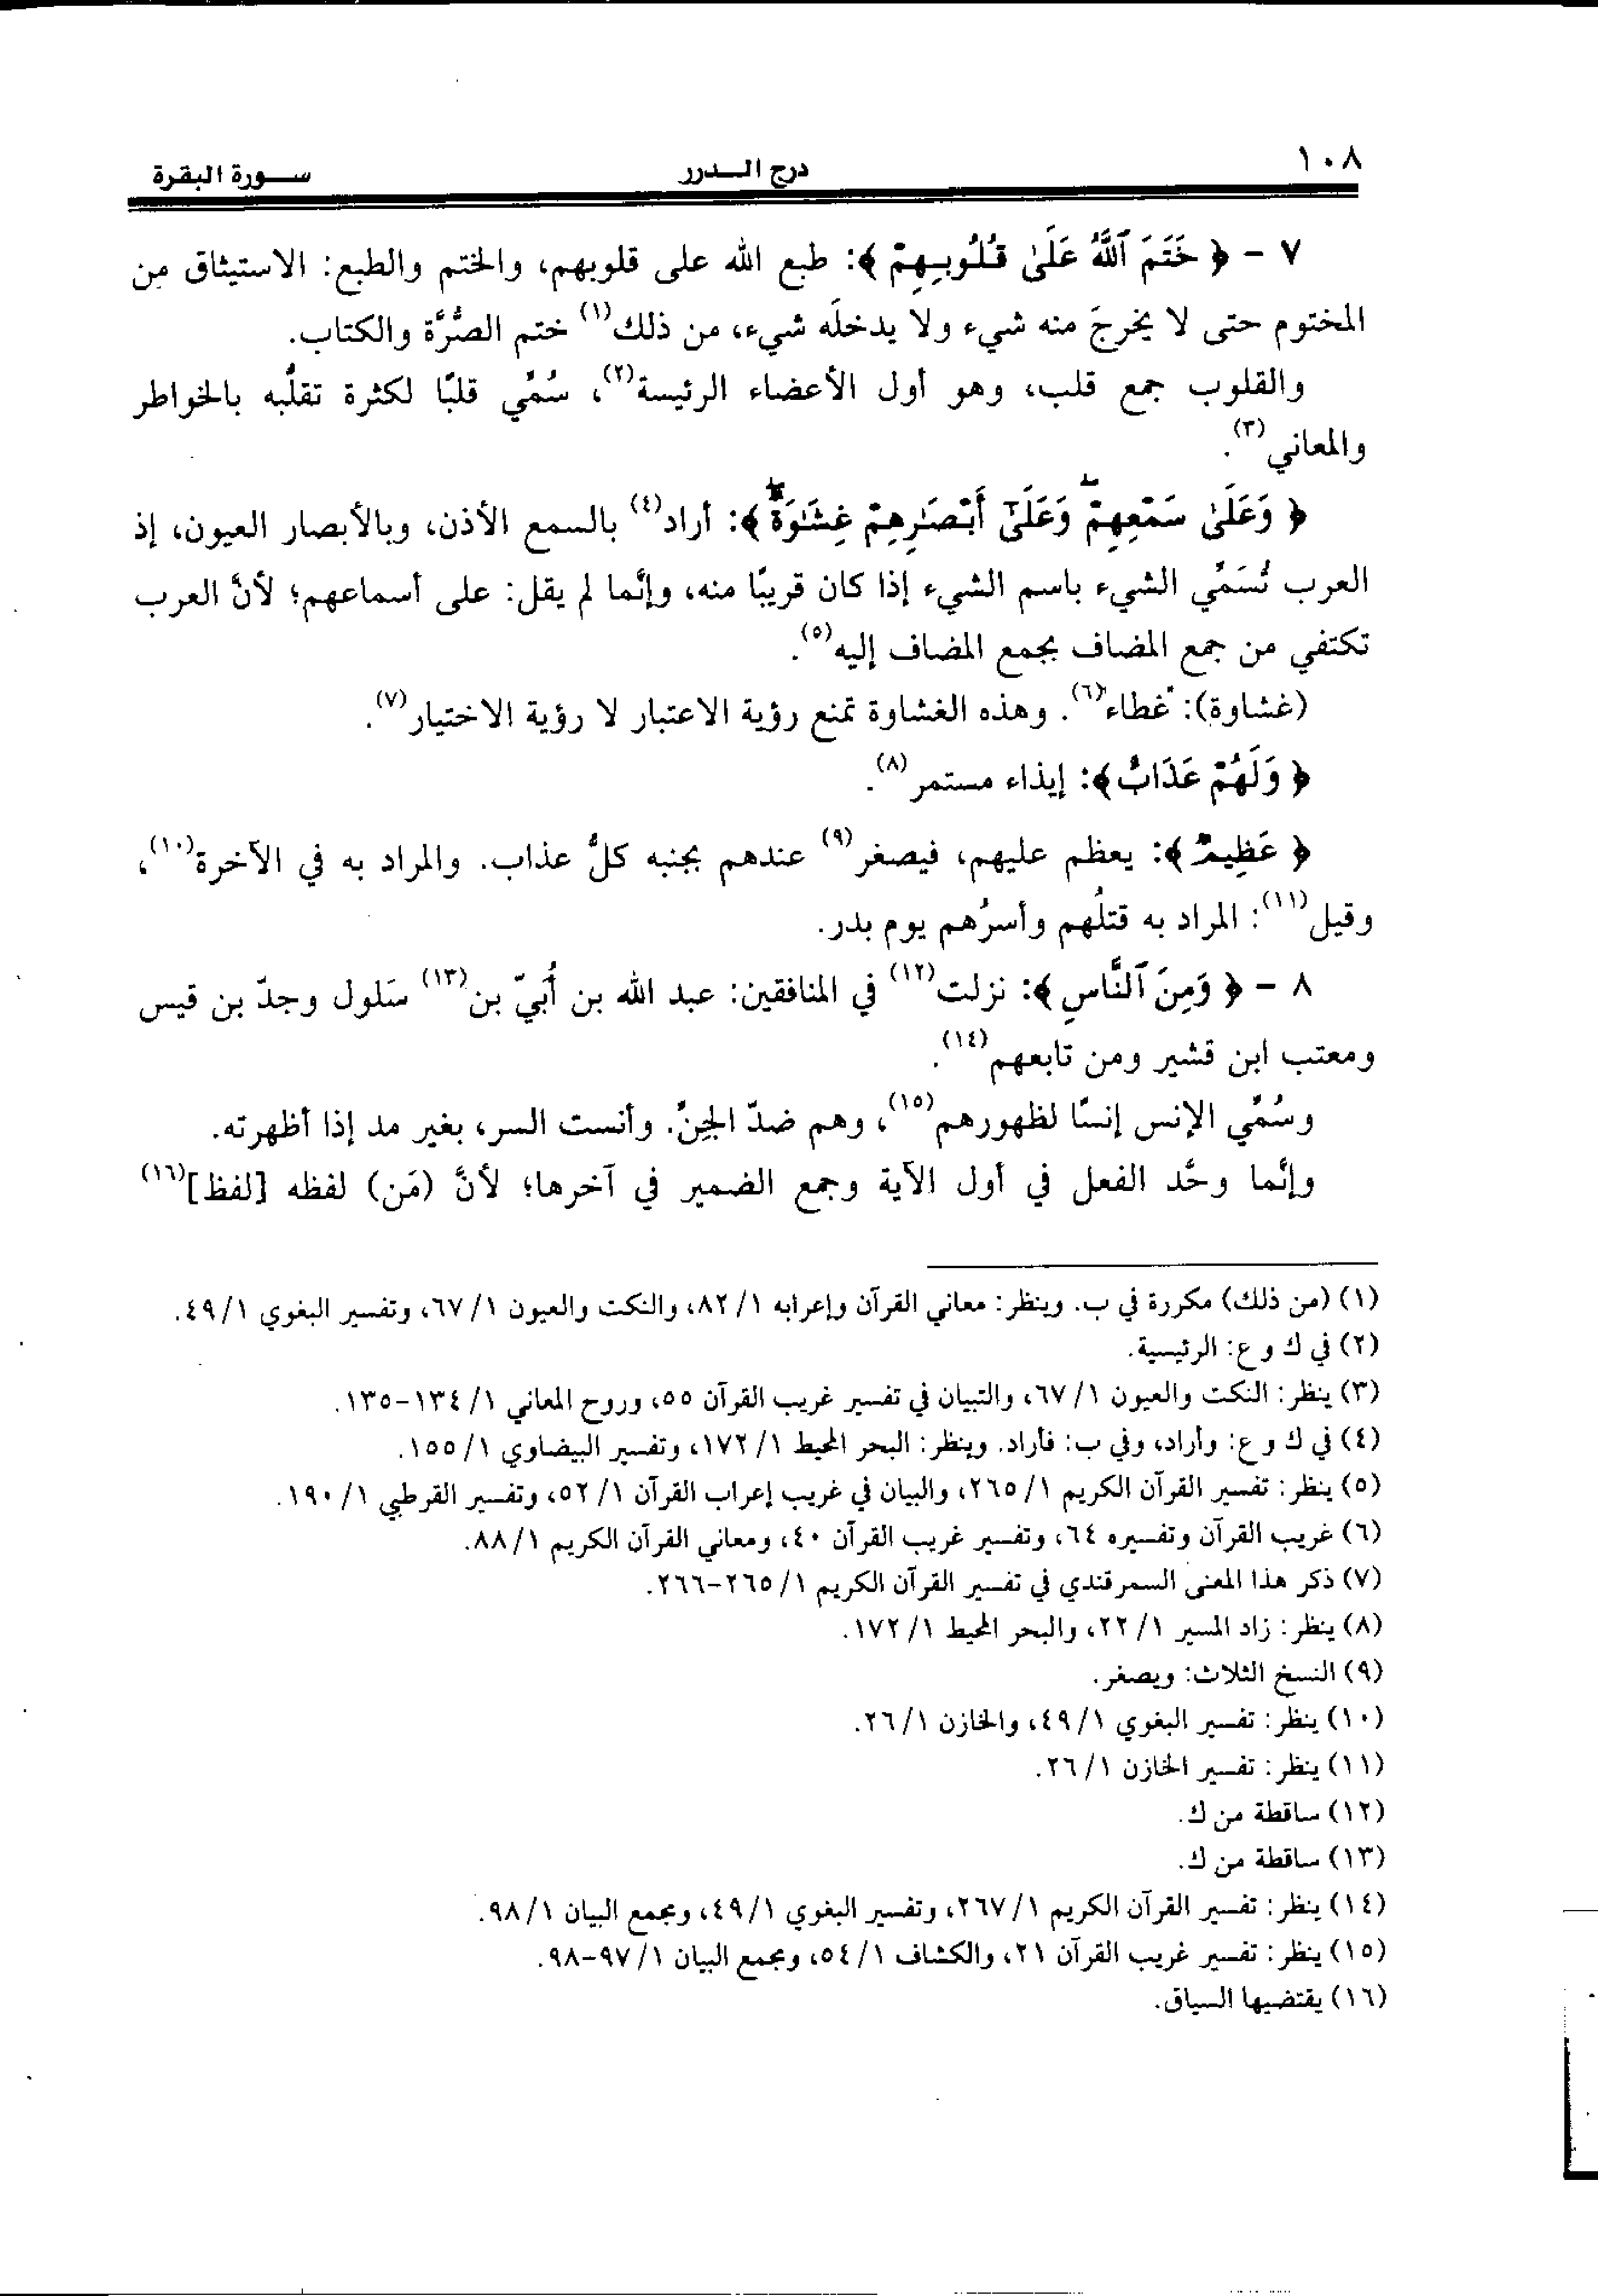 ١٠٨ درج الـــدرر ســـورة البقرة
٧ - ﴿ خَتَمَ ٱللَّهُ عَلَىٰ قُلُوبِهِمْ ﴾: طبع الله على قلوبهم، والختم والطبع: الاستيثاق من
المختوم حتى لا يخرجَ منه شيء ولا يدخلَه شيء، من ذلك(١) ختم الصُّرَّة والكتاب.
والقلوب جمع قلب، وهو أول الأعضاء الرئيسة(٢)، سُمِّي قلبًا لكثرة تقلُّبه بالخواطر
والمعاني(٣).
﴿ وَعَلَىٰ سَمْعِهِمْ ۖ وَعَلَىٰٓ أَبْصَـٰرِهِمْ غِشَـٰوَةٌ ۖ ﴾: أراد(٤) بالسمع الأذن، وبالأبصار العيون، إذ
العرب تُسَمِّي الشيء باسم الشيء إذا كان قريبًا منه، وإنَّما لم يقل: على أسماعهم؛ لأنَّ العرب
تكتفي من جمع المضاف بجمع المضاف إليه(٥).
(غشاوة): غطاء(٦). وهذه الغشاوة تمنع رؤية الاعتبار لا رؤية الاختيار(٧).
﴿ وَلَهُمْ عَذَابٌ ﴾: إيذاء مستمر(٨).
﴿ عَظِيمٌ ﴾: يعظم عليهم، فيصغر(٩) عندهم بجنبه كلُّ عذاب. والمراد به في الآخرة(١٠)،
وقيل(١١): المراد به قتلُهم وأسرُهم يوم بدر.
٨ - ﴿ وَمِنَ ٱلنَّاسِ ﴾: نزلت(١٢) في المنافقين: عبد الله بن أُبَيّ بن(١٣) سَلول وجدّ بن قيس
ومعتب ابن قشير ومن تابعهم(١٤).
وسُمِّي الإنس إنسًا لظهورهم(١٥)، وهم ضدّ الجِنِّ. وأنست السر، بغير مد إذا أظهرته.
وإنَّما وحَّد الفعل في أول الآية وجمع الضمير في آخرها؛ لأنَّ (مَن) لفظه [لفظ](١٦)
(١) (من ذلك) مكررة في ب. وينظر: معاني القرآن وإعرابه ١/ ٨٢، والنكت والعيون ١/ ٦٧، وتفسير البغوي ١/ ٤٩.
(٢) في ك و ع: الرئيسية.
(٣) ينظر: النكت والعيون ١/ ٦٧، والتبيان في تفسير غريب القرآن ٥٥، وروح المعاني ١/ ١٣٤-١٣٥.
(٤) في ك و ع: وأراد، وفي ب: فأراد. وينظر: البحر المحيط ١/ ١٧٢، وتفسير البيضاوي ١/ ١٥٥.
(٥) ينظر: تفسير القرآن الكريم ١/ ٢٦٥، والبيان في غريب إعراب القرآن ١/ ٥٢، وتفسير القرطبي ١/ ١٩٠.
(٦) غريب القرآن وتفسيره ٦٤، وتفسير غريب القرآن ٤٠، ومعاني القرآن الكريم ١/ ٨٨.
(٧) ذكر هذا المعنى السمرقندي في تفسير القرآن الكريم ١/ ٢٦٥-٢٦٦.
(٨) ينظر: زاد المسير ١/ ٢٢، والبحر المحيط ١/ ١٧٢.
(٩) النسخ الثلاث: ويصغر.
(١٠) ينظر: تفسير البغوي ١/ ٤٩، والخازن ١/ ٢٦.
(١١) ينظر: تفسير الخازن ١/ ٢٦.
(١٢) ساقطة من ك.
(١٣) ساقطة من ك.
(١٤) ينظر: تفسير القرآن الكريم ١/ ٢٦٧، وتفسير البغوي ١/ ٤٩، ومجمع البيان ١/ ٩٨.
(١٥) ينظر: تفسير غريب القرآن ٢١، والكشاف ١/ ٥٤، ومجمع البيان ١/ ٩٧-٩٨.
(١٦) يقتضيها السياق.